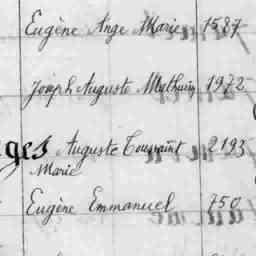 Eugène Ange Marie 1587
Joseph Auguste Mathurin 1972
ges Auguste Toussaint 2193
Marie
Eugène Emmanuel 750